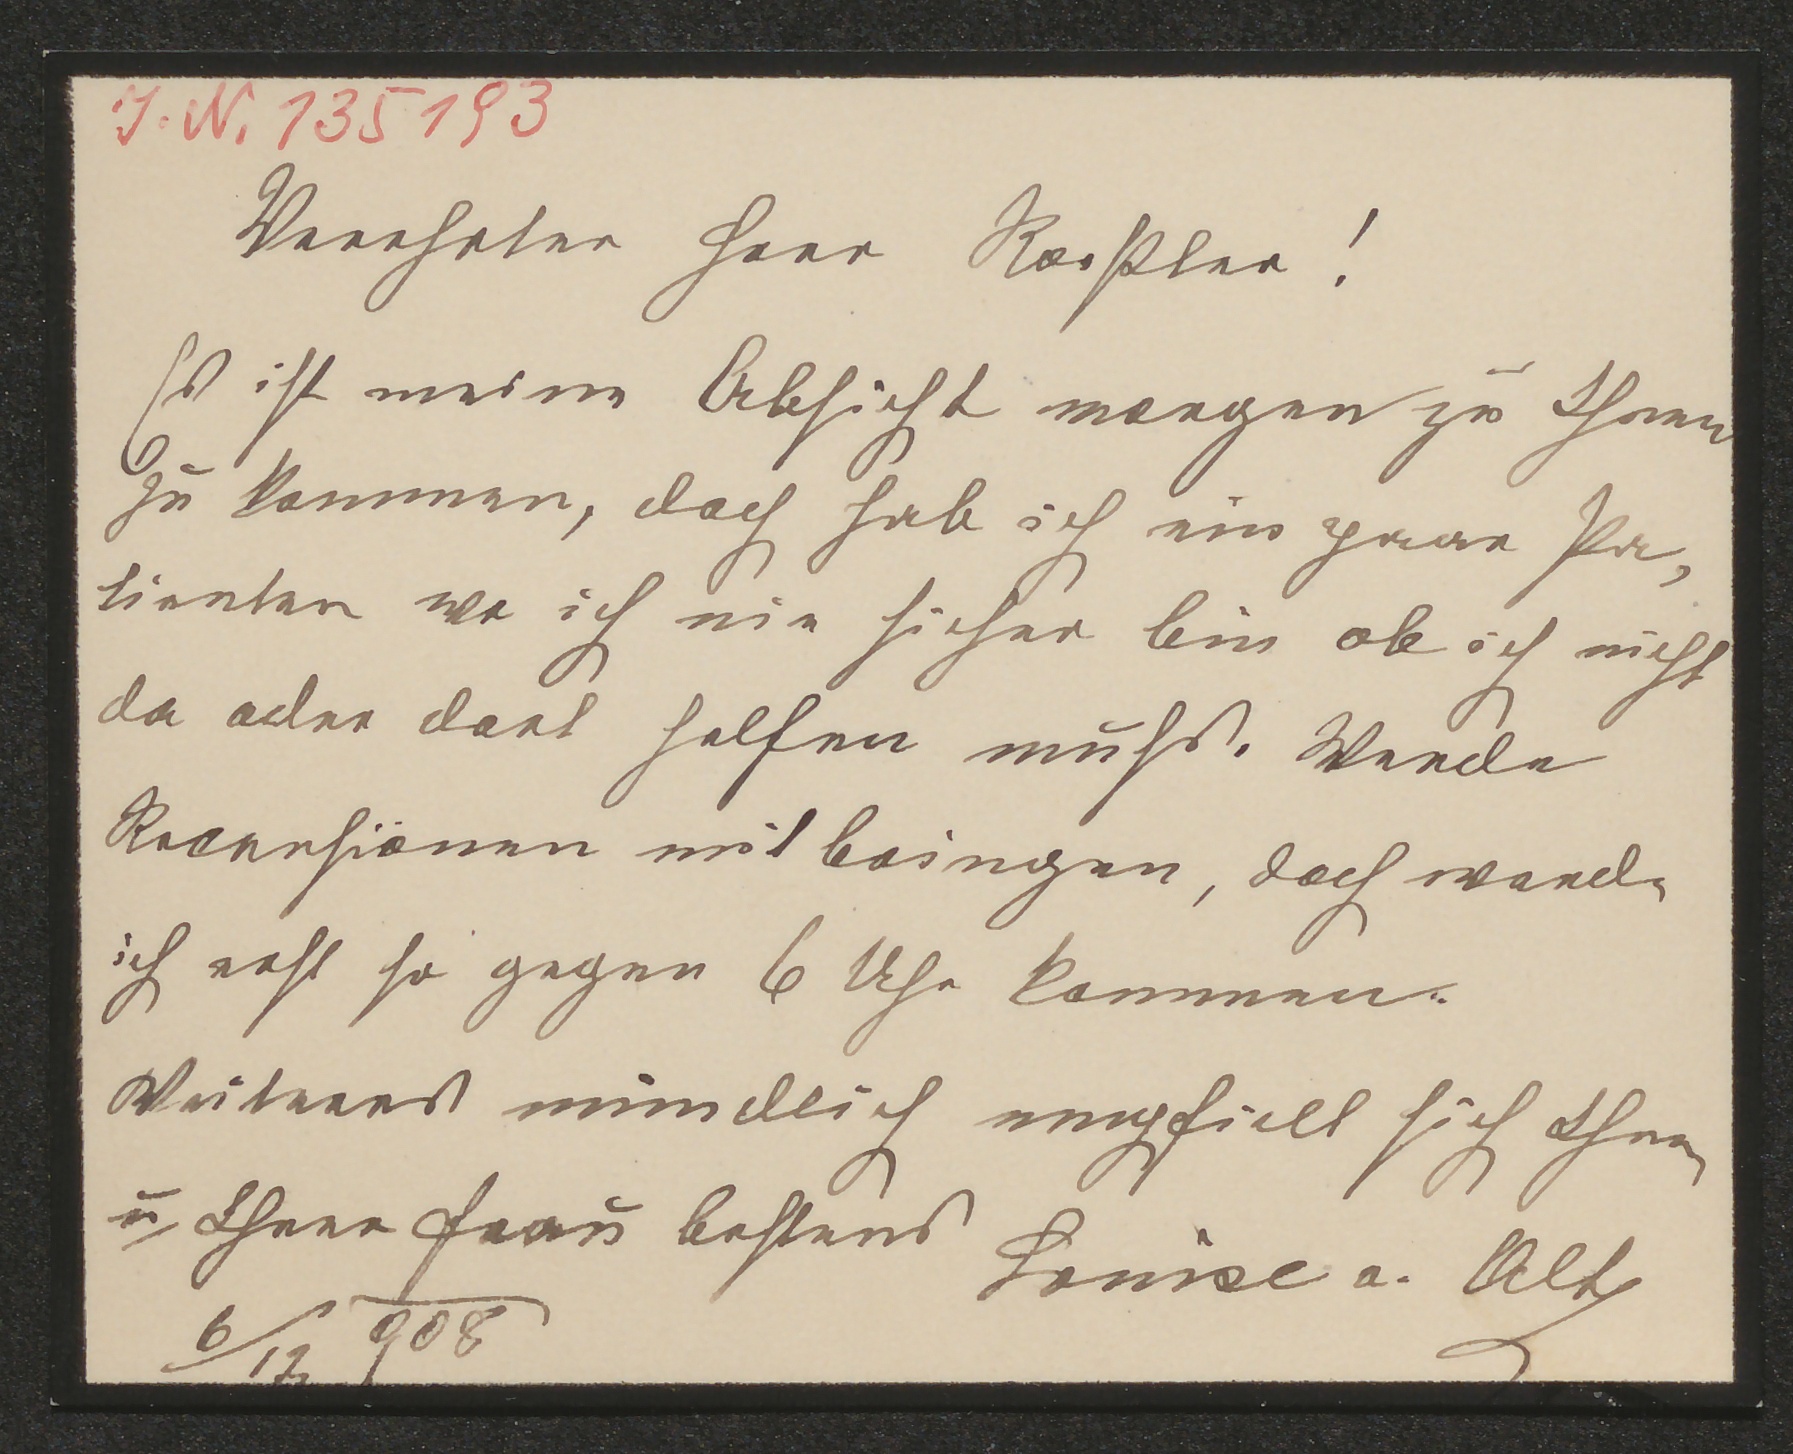 J. N. 135193
Verehrter Herr Roeßler!
Es ist meine Absicht morgen zu Ihnen
zu kommen, doch hab ich ein paar Pa,
tienten wo ich nie sicher bin ob ich nicht
da oder dort helfen muhs. Werde
Recensionen mit bringen, doch werde
ich erst so gegen 6 Uhr kommen.
Weiteres mündlich empfielt sich Ihnen
u Ihrer Frau bestens Louise v. Alt
6/12 908